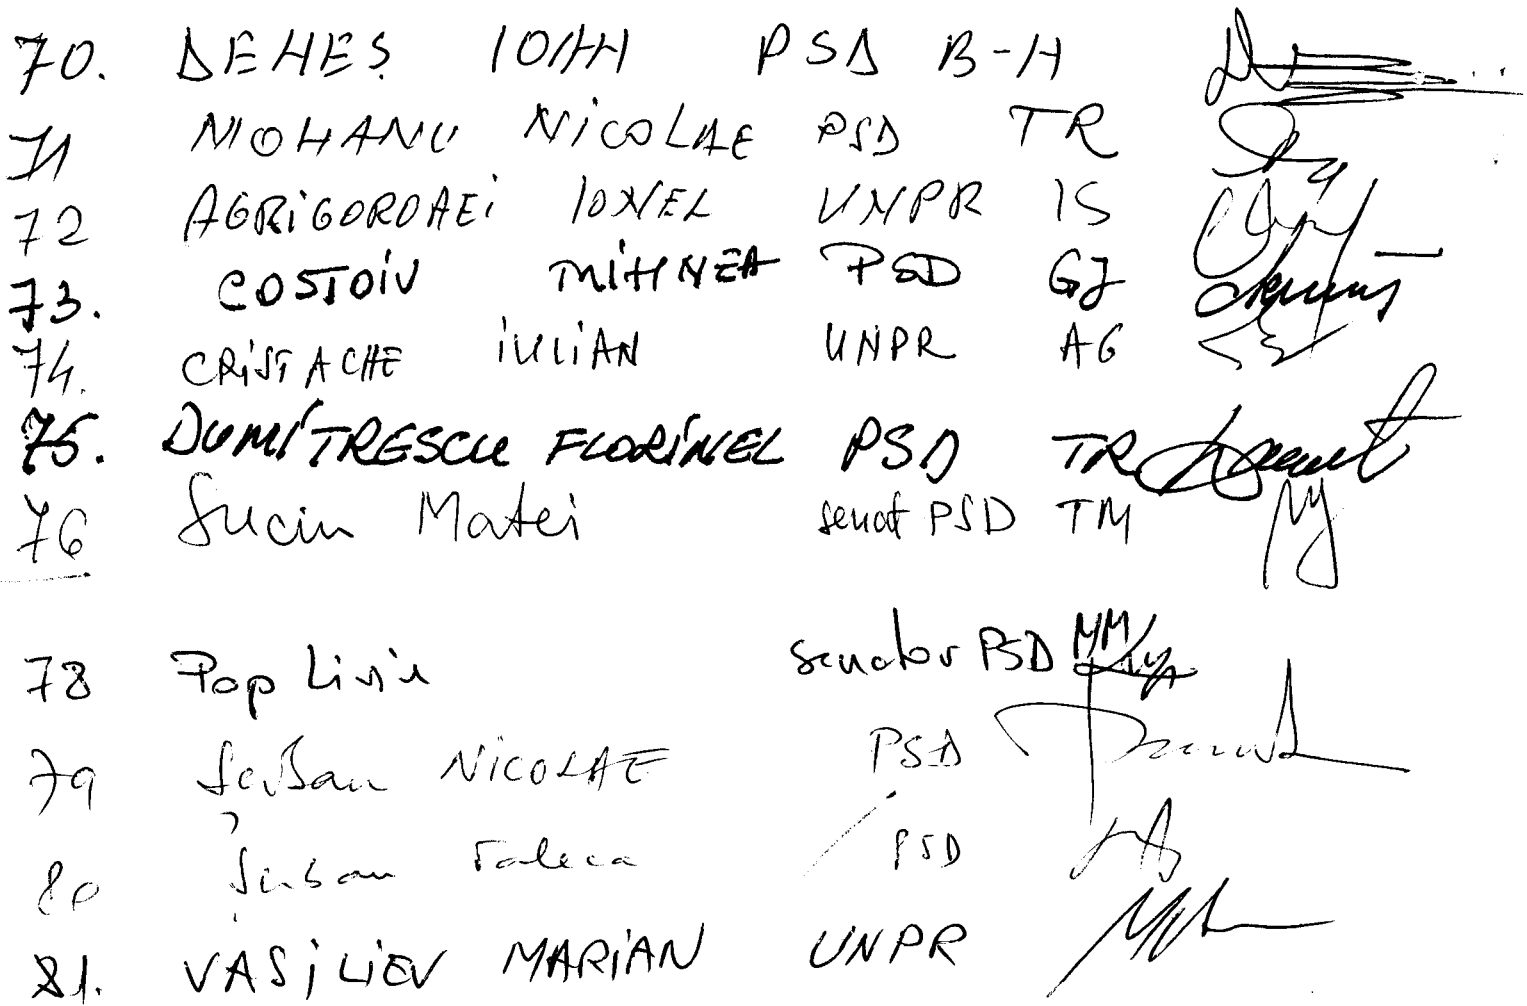 70. DEHEȘ IOAN PSD B-H
71 MOHANU NICOLAE PSD TR
72 AGRIGOROAEi IONEL UNPR IS
73. COSTOiU MiHNEA PSD GJ
74. CRiSTACHE iULiAN UNPR AG
75. DUMiTRESCU FLORiNEL PSD TR
76 Suciu Matei senat PSD TM
78 Pop Liviu senator PSD MM
79 Serban NICOLAE PSD
80 Serban PSD
81. VASiLIEV MARiAN UNPR